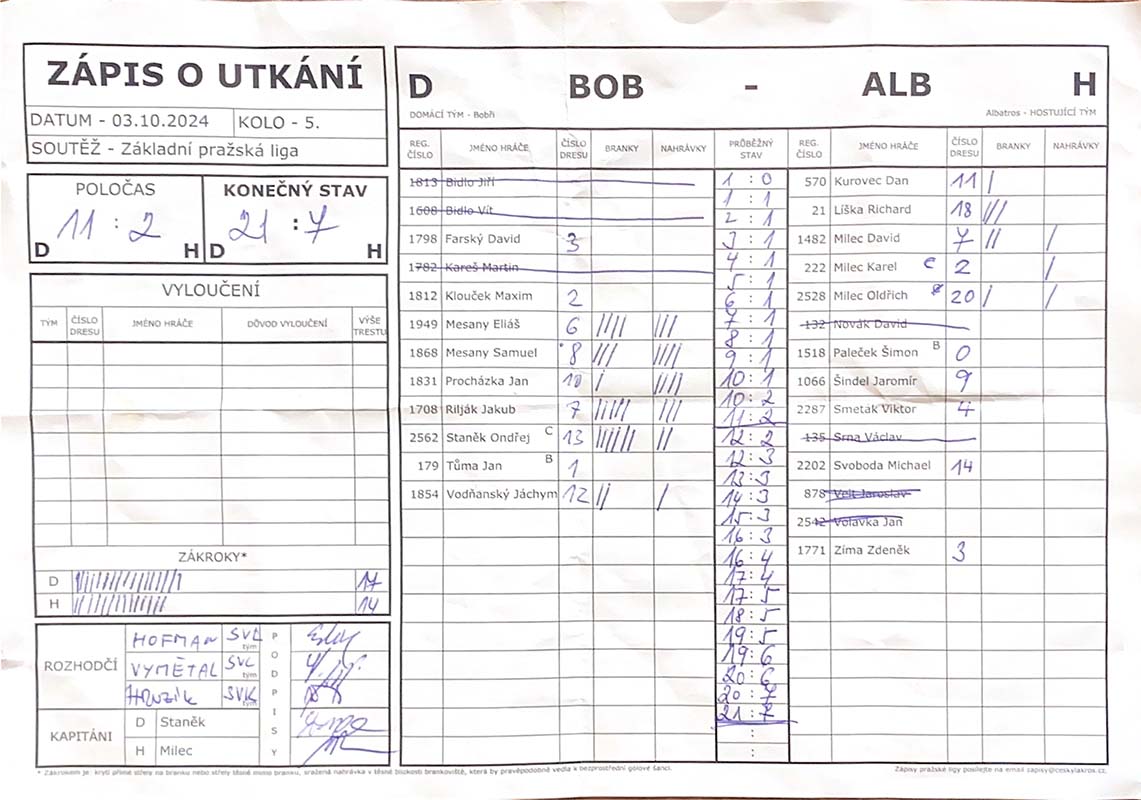 ZÁPIS O UTKÁNÍ
DATUM - 03.10.2024 KOLO - 5.
SOUTĚŽ - Základní pražská liga
POLOČAS KONEČNÝ STAV
11 : 2 21 : 7
D H D H
VYLOUČENÍ
TÝM ČÍSLO DRESU JMÉNO HRÁČE DŮVOD VYLOUČENÍ VÝŠE TRESTU
ZÁKROKY*
D 17
H 14
ROZHODČÍ
HOFMAN SVL tým
VYMĚTAL SVL tým
HRUZIK SVK tým
PODPISY
KAPITÁNI
D Staněk
H Milec
D BOB - ALB H
DOMÁCÍ TÝM - Bobři Albatros - HOSTUJÍCÍ TÝM
REG. ČÍSLO JMÉNO HRÁČE ČÍSLO DRESU BRANKY NAHRÁVKY PRŮBĚŽNÝ STAV REG. ČÍSLO JMÉNO HRÁČE ČÍSLO DRESU BRANKY NAHRÁVKY
1813 Bidlo Jiří
1608 Bidlo Vít
1798 Farský David 3
1782 Kareš Martin
1812 Klouček Maxim 2
1949 Mesany Eliáš 6 |||| |||
1868 Mesany Samuel 8 ||| ||||
1831 Procházka Jan 10 | ||||
1708 Rilják Jakub 7 ||||| |||
2562 Staněk Ondřej C 13 |||||| ||
179 Tůma Jan B 1
1854 Vodňanský Jáchym 12 || |
1 : 0
1 : 1
2 : 1
3 : 1
4 : 1
5 : 1
6 : 1
7 : 1
8 : 1
9 : 1
10 : 1
10 : 2
11 : 2
12 : 2
12 : 3
13 : 3
14 : 3
15 : 3
16 : 3
16 : 4
17 : 4
17 : 5
18 : 5
19 : 5
19 : 6
20 : 6
20 : 7
21 : 7
:
:
570 Kurovec Dan 11 |
21 Líška Richard 18 |||
1482 Milec David 7 || |
222 Milec Karel C 2 |
2528 Milec Oldřich 20 | |
132 Novák David
1518 Paleček Šimon B 0
1066 Šindel Jaromír 9
2287 Smeták Viktor 4
135 Srna Václav
2202 Svoboda Michael 14
878 Velt Jaroslav
2542 Volavka Jan
1771 Zíma Zdeněk 3
* Zákrokem je: krytí přímé střely na branku nebo střely těsně mimo branku, sražená nahrávka v těsné blízkosti brankoviště, která by pravěpodobně vedla k bezprostřední gólové šanci.
Zápisy pražské ligy posílejte na email zapisy@ceskylakros.cz.